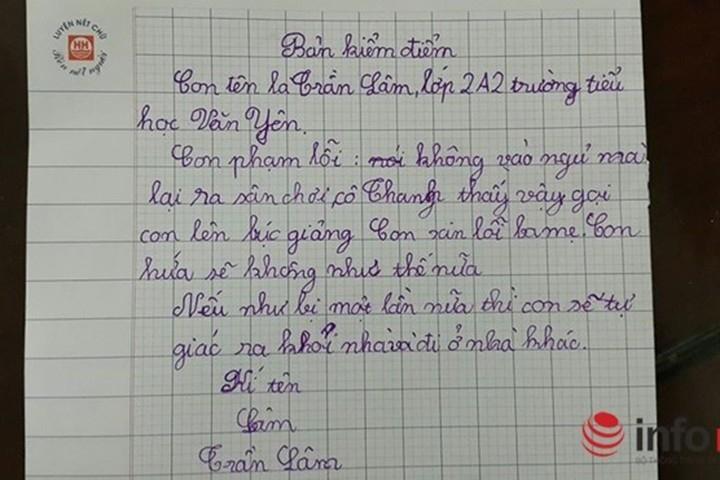 LUYỆN NÉT CHỮ
HH
Rèn nết người
Bản kiểm điểm
Con tên la Trần Lâm, lớp 2A2 trường tiểu
học Văn Yên.
Con phạm lỗi : nói không vào ngủ mà
lại ra sân chơi, cô Thanh thấy vậy gọi
con lên bục giảng Con xin lỗi ba mẹ. Con
hứa sẽ không như thế nữa
Nếu như lại một lần nữa thì con sẽ tự
giác ra khỏi nhà và đi ở nhà khác.
Kí tên
Lâm
Trần Lâm
info